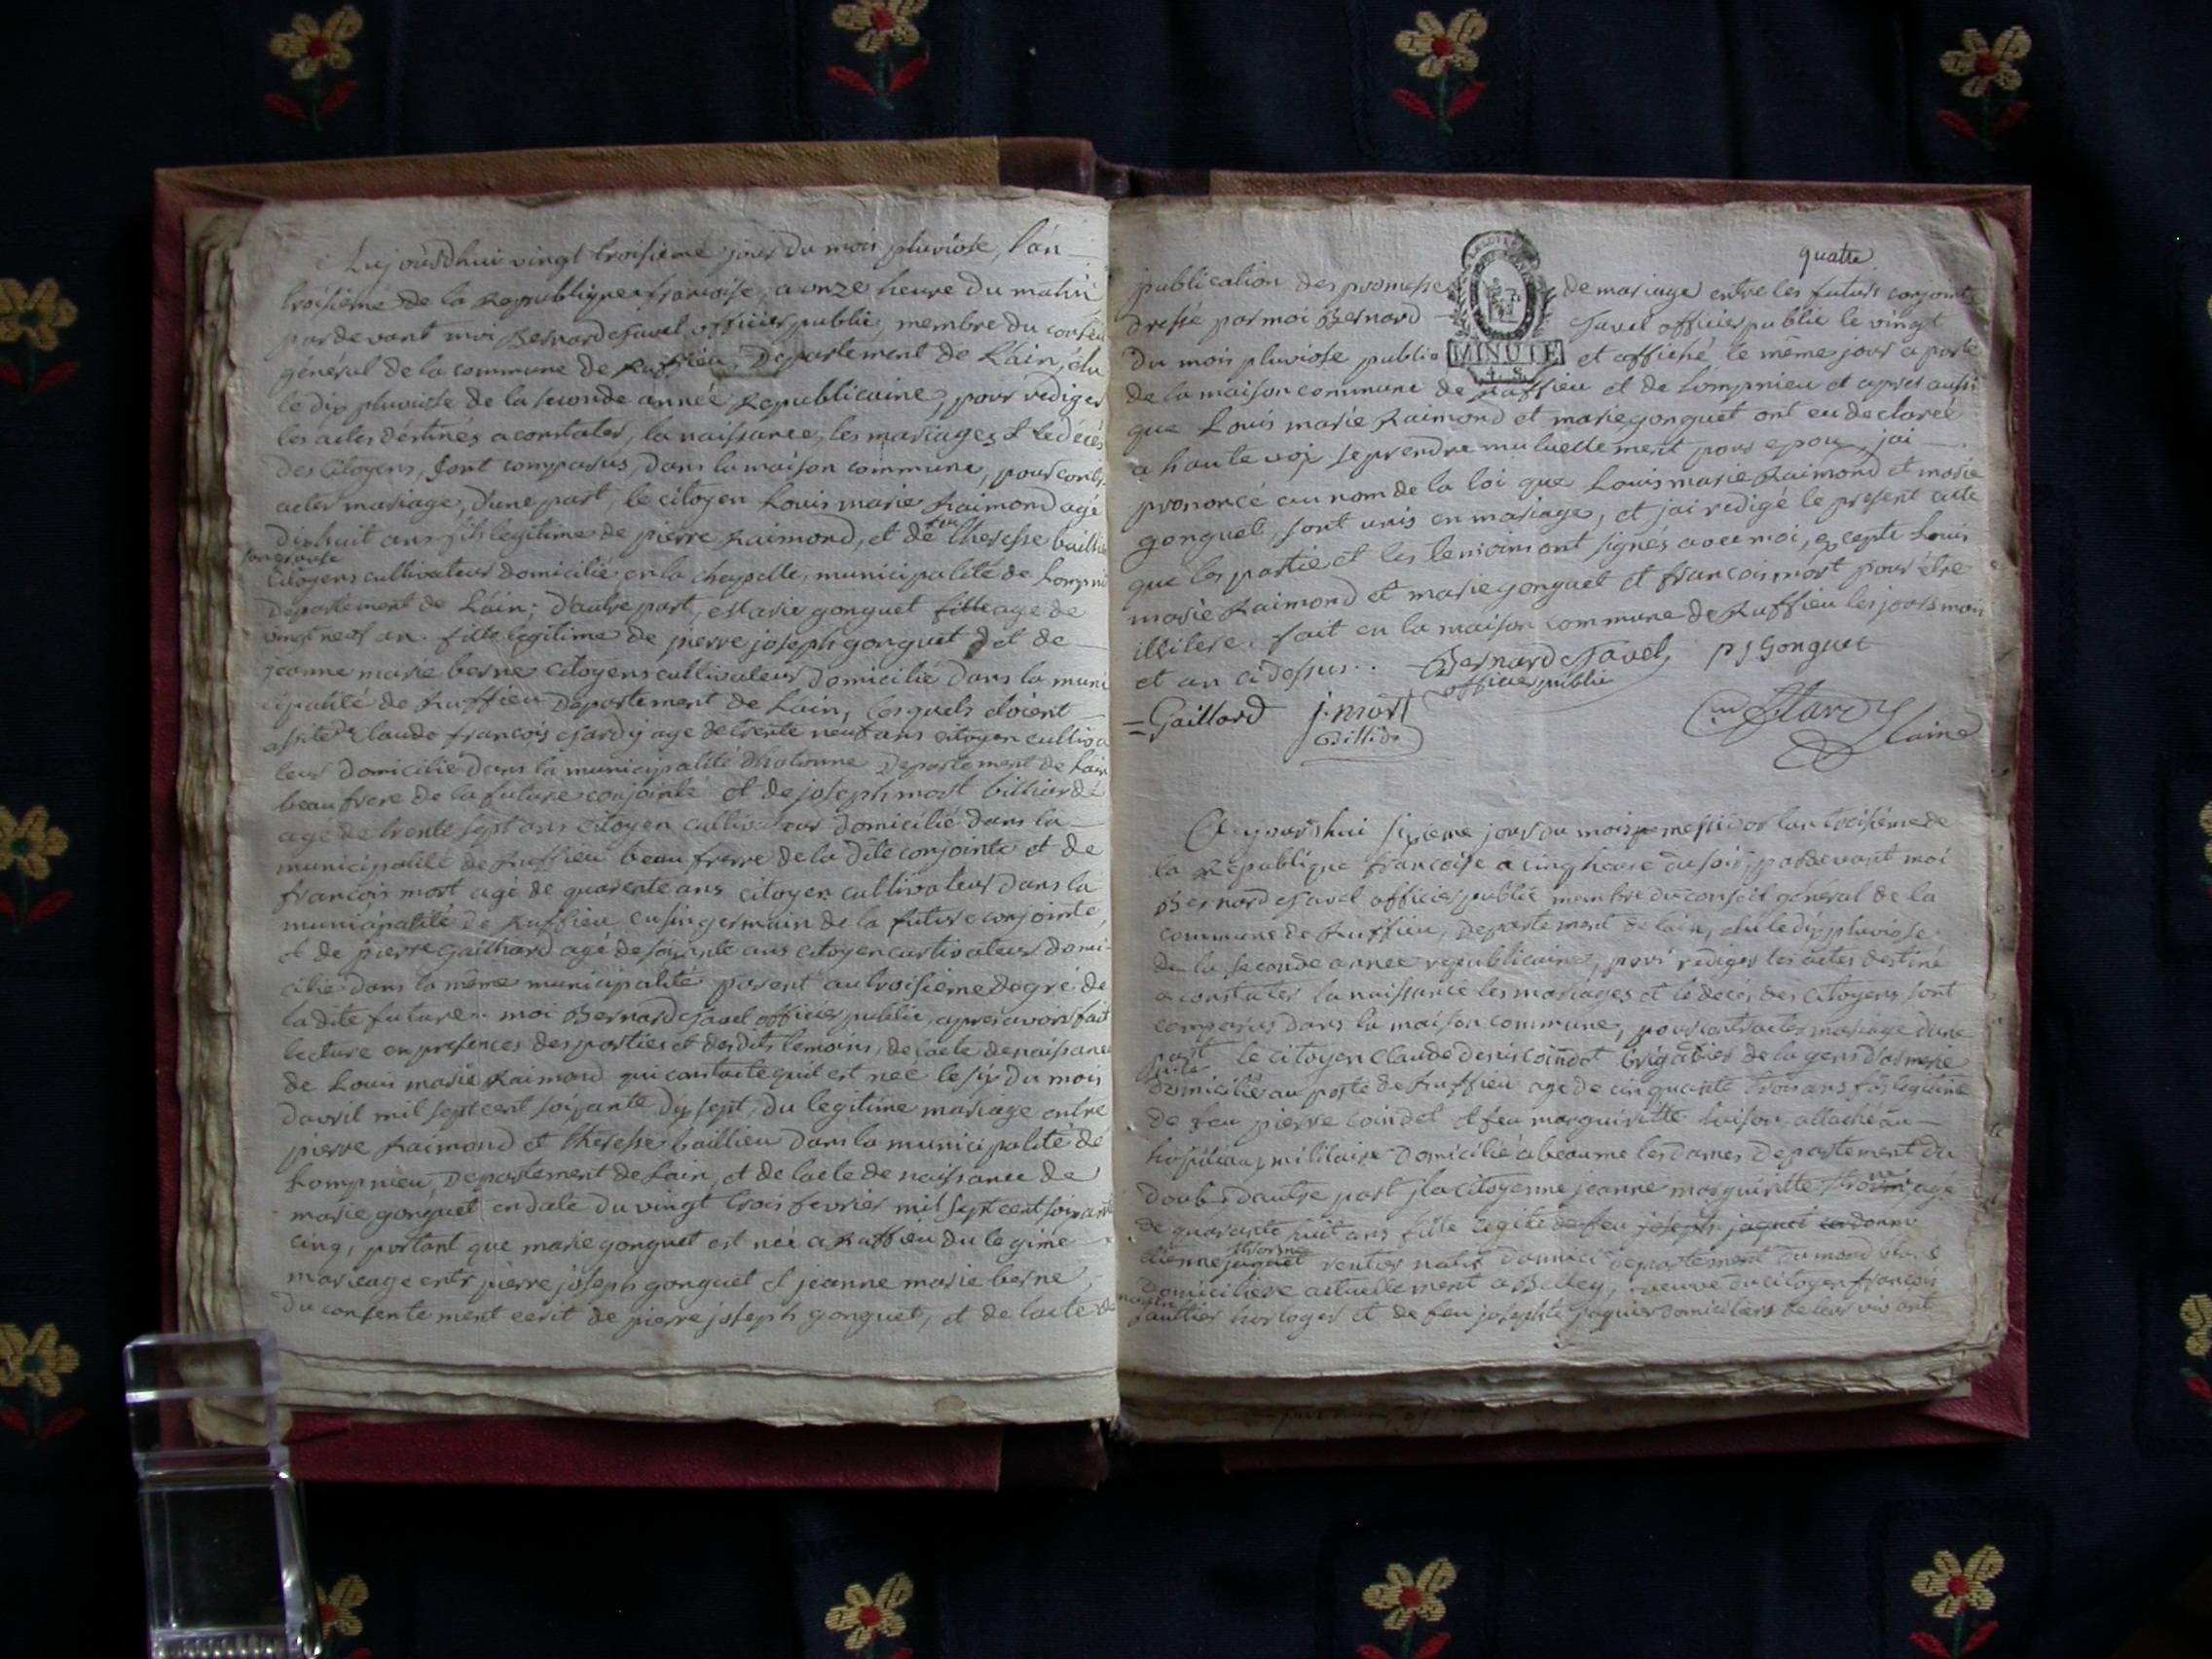 Aujourdhui vingt troisieme jour du mois pluviose, l'an
troisieme de la Republique francoise, a onze heure du matin
pardevant moi Bernard Savel officier public, membre du conseil
général de la commune de Ruffieu, Departement de L'ain, élu
le dix pluviose de la seconde année Republicaine, pour rediger
les actes déstinés a constater, la naissance, les mariages & le décès
des Citoyens, sont comparus, dans la maison commune, pour contr
acter mariage, d'une part, le citoyen Louis marie Raimond agé
dixhuit ans fils legitime de pierre Raimond, et de theresse baillieu
son epouse
Citoyens cultivateur domicilié en la chapelle, municipalité de Lompni
Departement de L'ain; d'autre part, et marie gonguet fille age de
vingt neuf an. fille legitime de pierre joseph gonguet et de
jeanne marie berne citoyens cultivateur domicilié dans la muni
cipalité de Ruffieu Departement de Lain, lesquels étoient
assité de Claude françois Jardy age de trente neuf ans citoyen cultiva
teur domicilié dans la municipalité dhotonne Departement de Lain
beaufrere de la future conjointe et de joseph mort billiard
agé de trente sept ans citoyen cultivateur domicilié dans la
municipalité de Ruffieu beau frerre de la dite conjointe et de
francois mort agé de quarente ans citoyen cultivateur dans la
municipalité de Ruffieu cusin germain de la future conjointe,
et de pierre gailliard agé de soixante ans citoyen cultivateur domi-
cilié dans la même municipalité parent au troisieme degré de
ladite future. moi Bernard Savel officier public, apres avoir fait
lecture en presences des parties et desdits temoins, de lacte de naissance
de Louis marie Raimond qui constate quil est neé le six du mois
davril mil sept cent soixante dix sept, du legitime mariage entre
pierre Raimond et theresse baillieu dans la municipalité de
Lompnieu, Departement de Lain, et de lacte de naissance de
marie gonguet en date du vingt trois fevrier mil sept cent soixante
cinq, portant que marie gonguet est neé a Ruffieu du legime
mariage entr pierre joseph gonguet & jeanne marie berne,
du consentement ecrit de pierre joseph gonguet, et de lacte de
quatre
publication des promesse de mariage entre les futurs conjoints
dressé par moi Bernard Savel officier public le vingt
du mois pluviose publié et affiché le même jour a porte
MINUTE
4. S.
de la maison commune de Ruffieu et de Lompnieu et apres aussi
que Louis marie Raimond et marie gonguet ont eu declareé
a haute voix se prendre mutuellement pour epoux, jai
prononcé au nom de la loi que Louis marie Raimond et marie
gonguet sont unis en mariage, et jai redigé le present acte
que les partie et les temoins ont signés avec moi, excepte Louis
marie Raimond et marie gonguet et francois mort pour être
illitere. fait en la maison commune de Ruffieu les jours mois
et an ci dessus. Bernard Savel P J Gonguet
officier public
Gaillard j. mort
Billiar
Jardy
laine
Aujourdhui sixieme jour du mois messidor lan troisieme de
la Republique francoise a cinq heure du soir, pardevant moi
Bernard Savel officier public membre du conseil général de la
commune de Ruffieu, Departement de lain, élu le dix pluviose
de la seconde année republicaine, pour rediger les actes destiné
a constater la naissance les mariages et le decès des Citoyens sont
comparus dans la maison commune, pour contracter mariage dune
part le citoyen Claude denis coindet brigadier de la gendarmerie
domicilié au poste de Ruffieu age de cinquante trois ans fils legitime
de feu pierre coindet & feu marguiritte attaché au
hopiteaux militaire domicilié a beaume les dames Departement du
Doub, d'autre part la citoyenne jeanne marguiritte agé
de quarante huit ans fille legite de feu joseph jaquet
rentier natif departement du mond blanc
Domiciliere actuellement a Belley, veuve du citoyen francois
Gauttier horloger et de feu josephte jaquier domiciliers de leur vivant